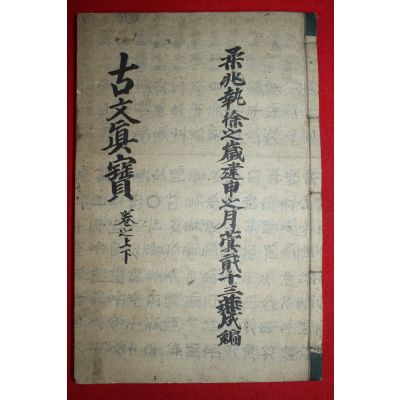 柔兆執徐之歲建申之月蓂貳十三葉成編
古文眞寶
卷之上下